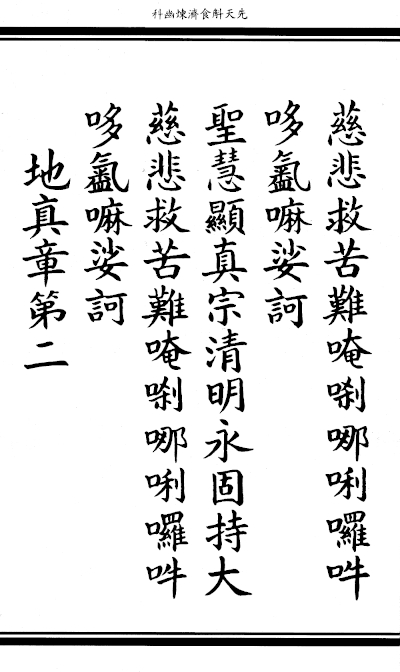 先天斛食濟煉幽科
慈悲救苦難唵喇哪唎囉吽
哆嘛娑訶
聖慧顯真宗清明永固持大
慈悲救苦難唵喇哪唎囉吽
哆嘛娑訶
地真章第二